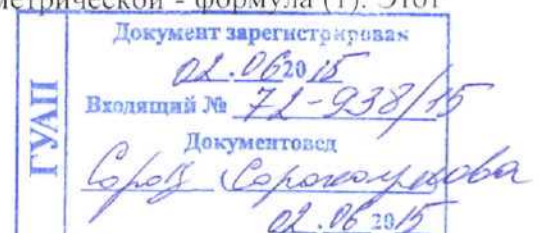 метрической - формула (1). Этот
ГУАП
Документ зарегистрирован
02.06 2015
Входящий № 72-938/15
Документовед
Сороко
02.06 2015